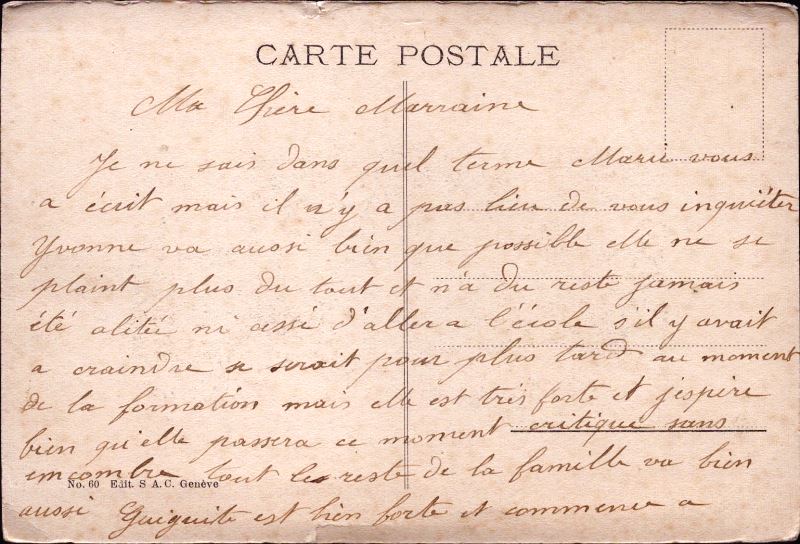 CARTE POSTALE
Ma Chère Marraine
Je ne sais dans quel terme Marie vous
a écrit mais il n'y a pas lieu de vous inquiéter
Yvonne va aussi bien que possible elle ne se
plaint plus du tout et n'a du reste jamais
été alitée ni cessé d'aller a l'école s'il y avait
a craindre se serait pour plus tard au moment
de la formation mais elle est très forte et j'espère
bien qu'elle passera ce moment critique sans
encombre tout le reste de la famille va bien
No. 60 Edit. S. A. C. Genève
aussi Guiguite est bien forte et commence a